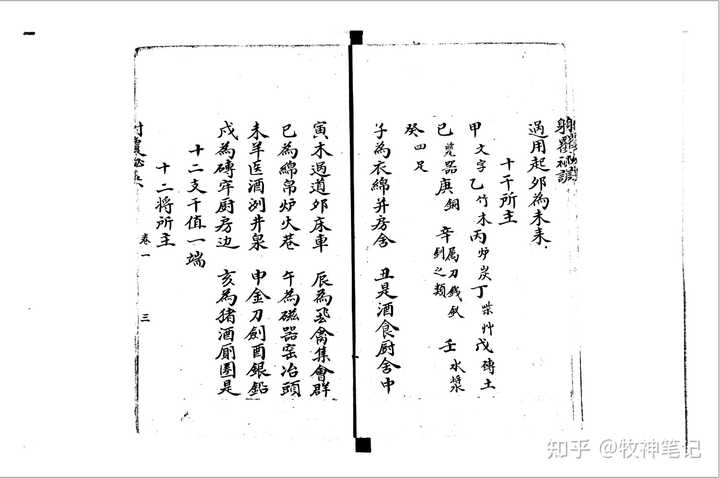 過用起邜為未来
十干所主
甲文字乙竹木丙炉炭丁柴艸戊磚土
器庚銅 辛属刀錢釵之類 壬水漿
癸四足
子為衣綿井房舍 丑是酒食厨舍中
寅木過道邜床車 辰為飛禽集會群
巳為綿帛炉火巷 午為磁器窑冶頭
未羊医酒洌井泉 申金刀劍酉銀鉛
戌為磚牢厨房边 亥為猪酒厠圂是
十二支干值一端
十二将所主
卷一 三
知乎 @牧神笔记